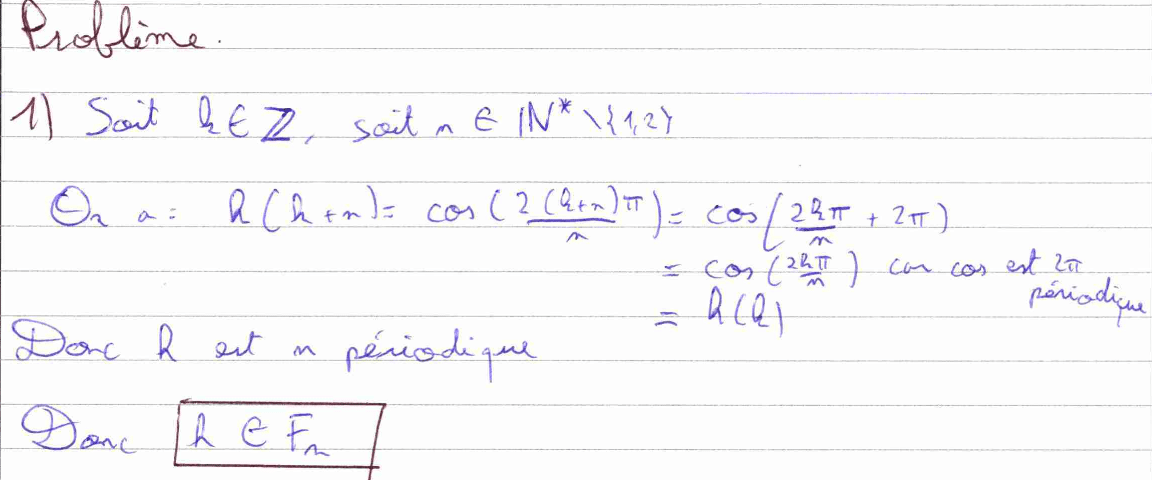 Problème.
1) Soit k ∈ ℤ, soit n ∈ ℕ* \ {1,2}
On a : h(k+n) = cos(2(k+n)π/n) = cos(2kπ/n + 2π)
= cos(2kπ/n) car cos est 2π périodique
= h(k)
Donc h est n périodique
Donc h ∈ Fn